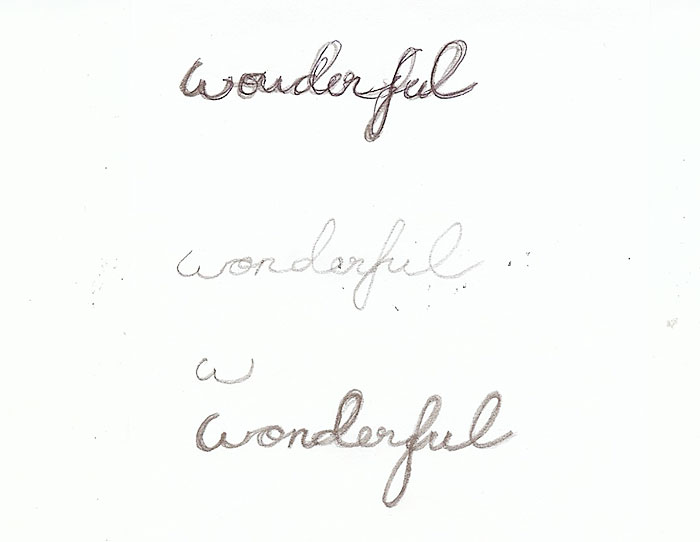 wonderful
wonderful
w
wonderful